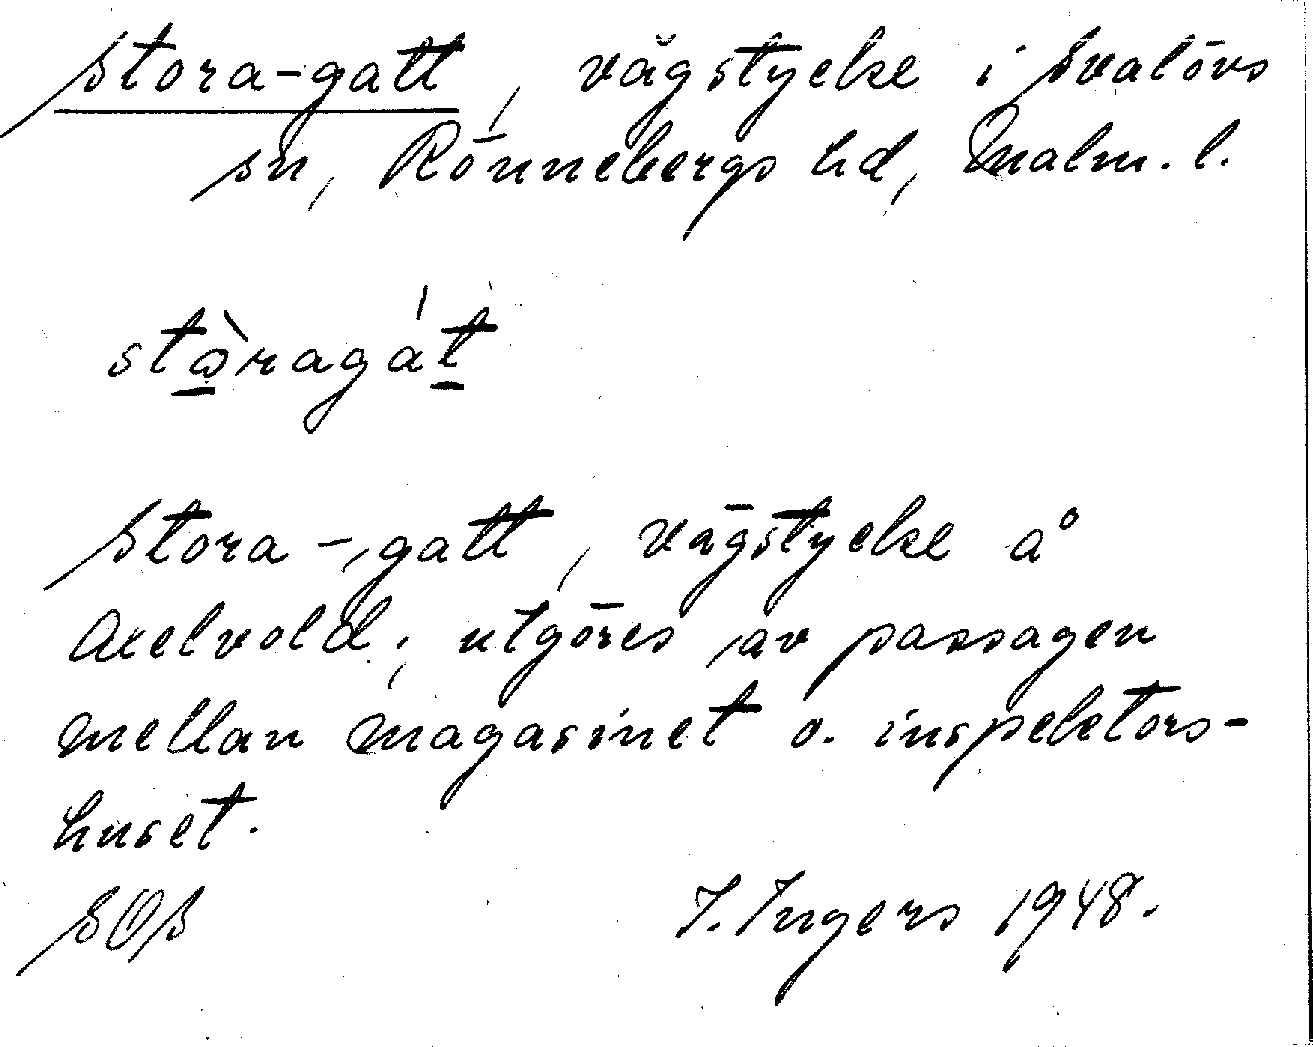 Stora-gatt, vägstycke i Svalövs
sn, Rönnebergs hd, Malm. l.
stɑ̀ragát
Stora-gatt, vägstycke å
Axelvold; utgöres av passagen
mellan magasinet o. inspektors-
huset.
SOS I. Ingers 1948.